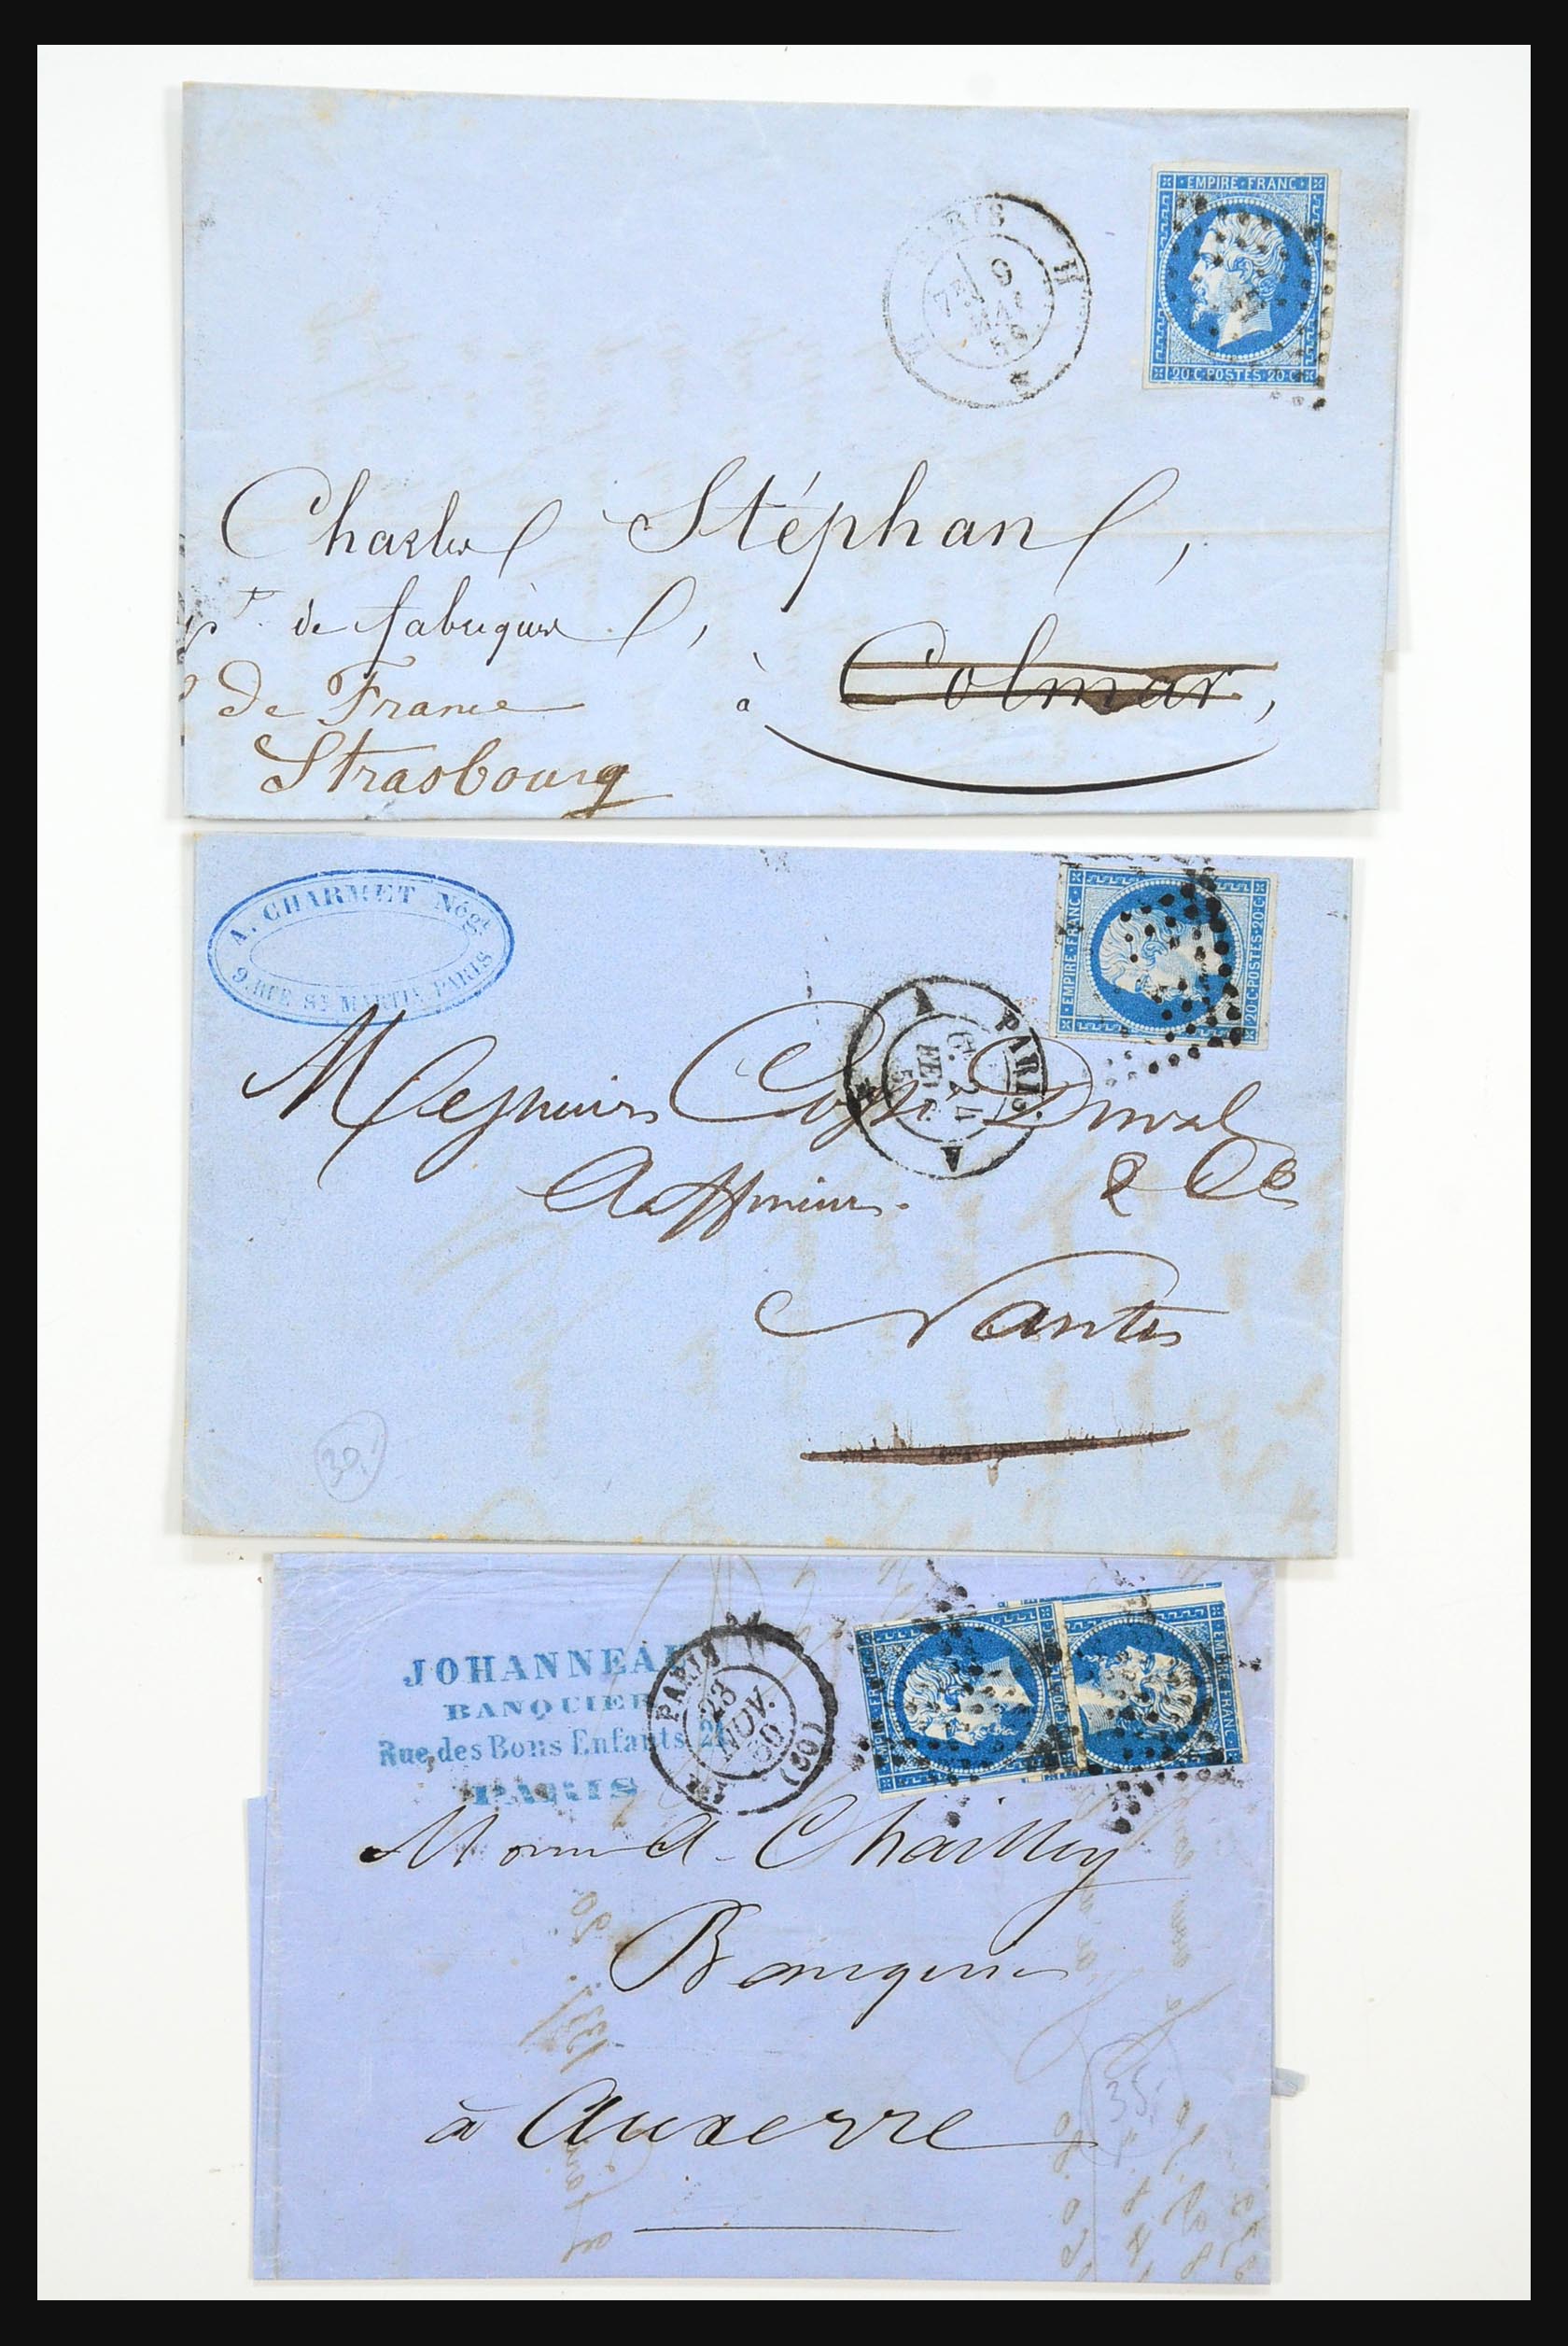 EMPIRE·FRANC·
20·C·POSTES·20·C·
PARIS H
9
7E
Charles Stéphan,
de fabriques,
à Colmar,
De France
Strasbourg
A. CHARMET Négt
9, RUE St MARTIN, PARIS
EMPIRE·FRANC·
20·C·POSTES·20·C
PARIS
A
24
A
Messieurs Duval
& Cie
Affineurs.
Nantes
30
JOHANNEA
BANQUIER
Rue des Bons Enfants, 21
PARIS
PARIS
23
NOV.
60
(60)
EMPIRE FRANC
EMPIRE FRANC
Chailley
Banquier
à Auxerre
35